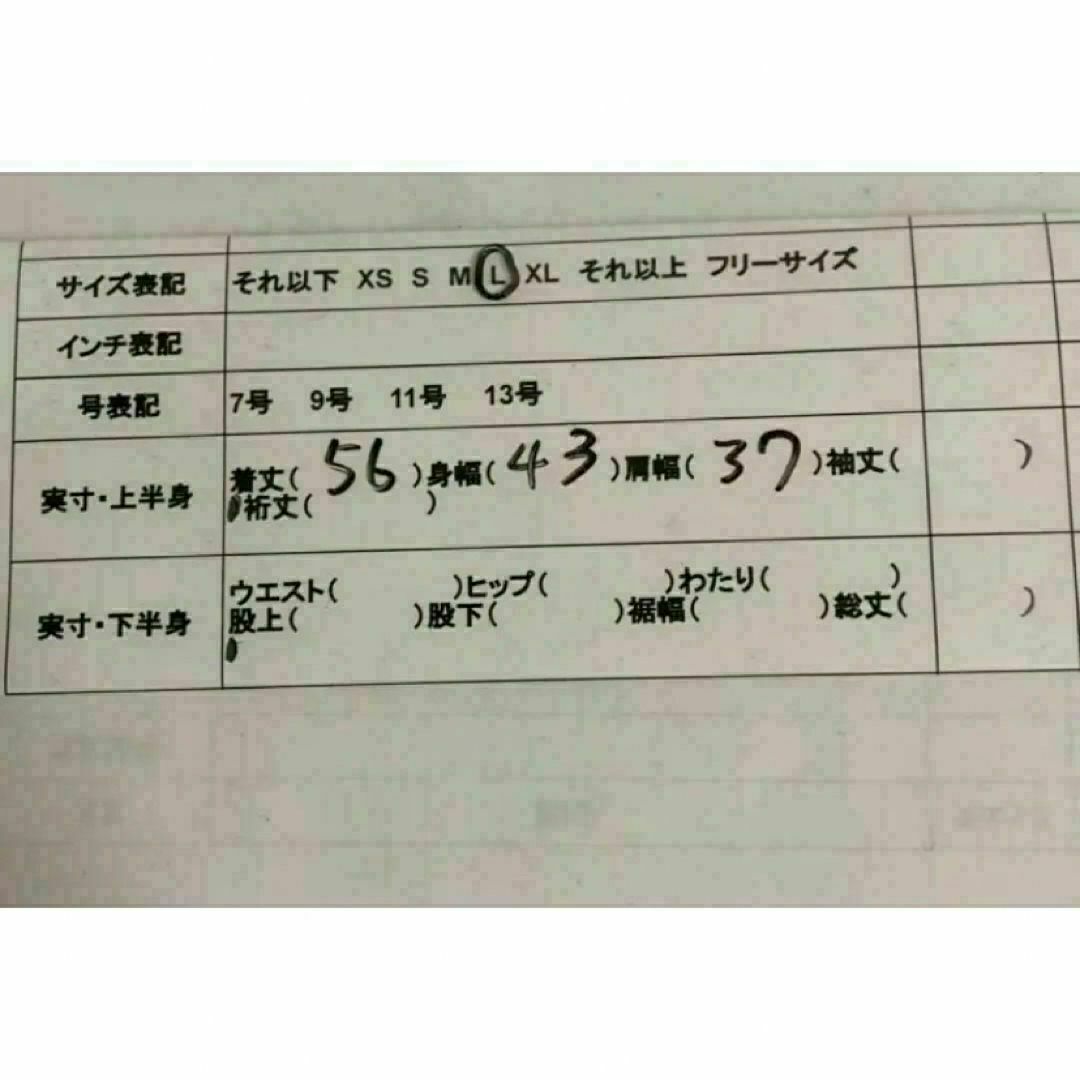 サイズ表記 それ以下 XS S M L XL それ以上 フリーサイズ
インチ表記
号表記 7号 9号 11号 13号
実寸・上半身 着丈( 56 )身幅( 43 )肩幅( 37 )袖丈( )
裄丈( )
実寸・下半身 ウエスト( )ヒップ( )わたり( )
股上( )股下( )裾幅( )総丈( )